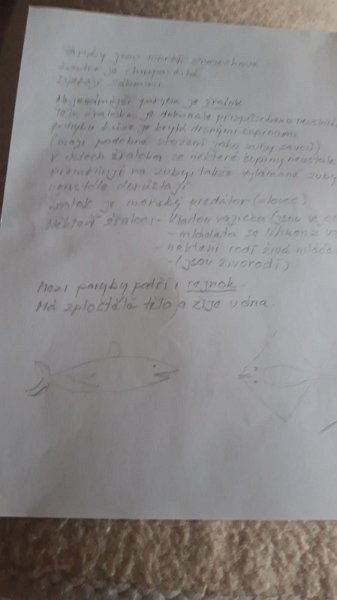 Paryby jsou mořští živočichové
kostra je chrupavčitá
Dýchají žábrami
Nejznámější paryba je žralok
Tělo žraloka je dokonale přizpůsobeno
pohybu kůže je krytá drsnými šupinami
(mají podobné složení jako zuby savců)
v ústech žraloka se některé šupiny neustále
přeměňují na zuby, takže vylámané zuby
neustále dorůstají
žralok je mořský predátor (lovec)
Někteří žraloci - kladou vajíčka (jsou
- mláďata se líhnou
- někteří rodí živá mláďa
- (jsou živorodí)
Mezi paryby patří i rejnok.
Má zploštělá tělo a žije u dna.